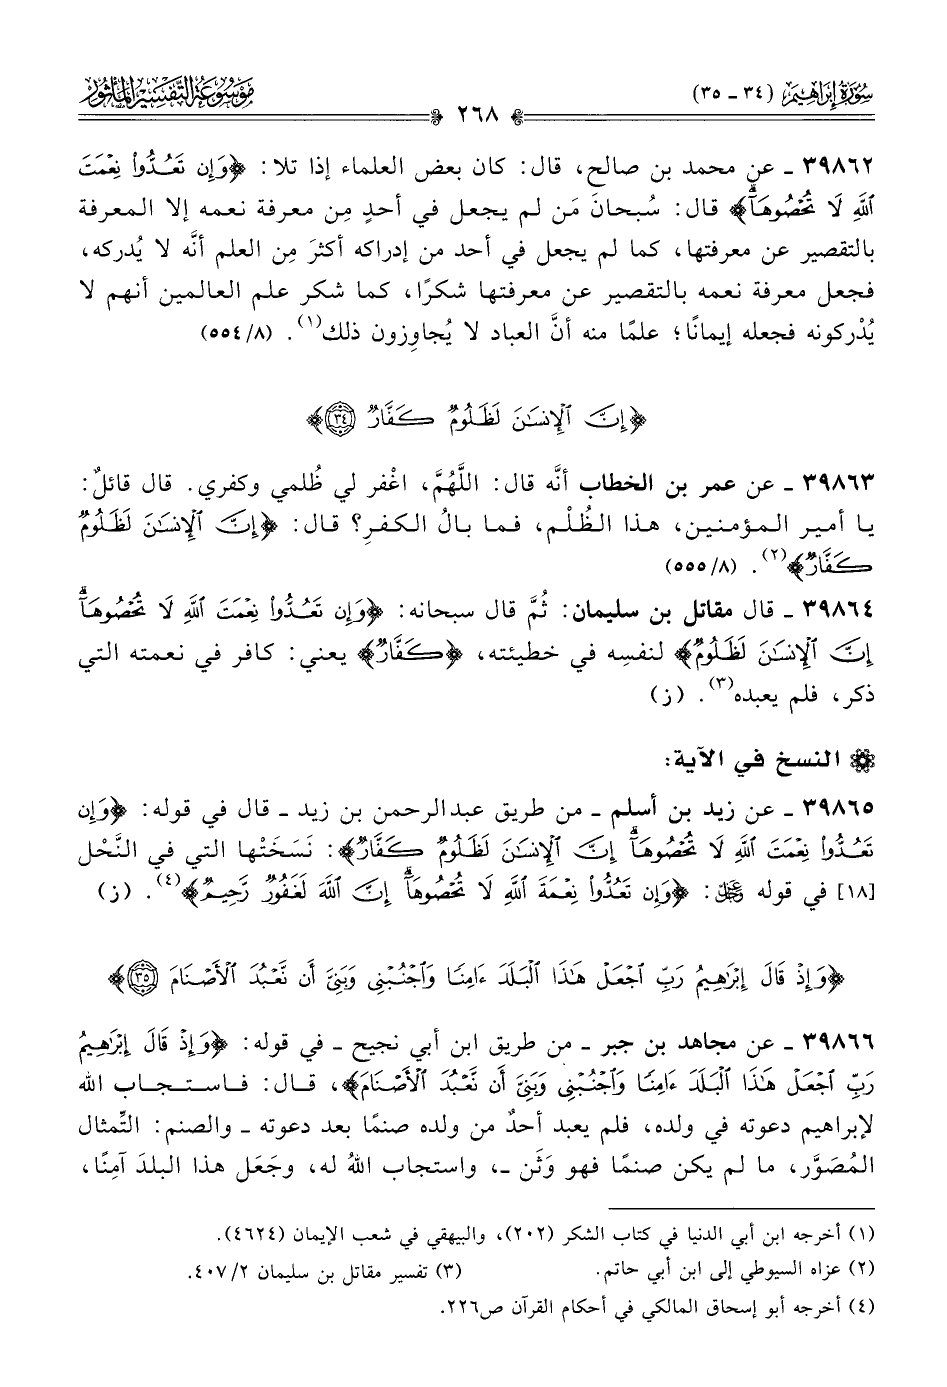 سُورَةُ إِبْرَاهِيمَ (٣٤ - ٣٥)
٢٦٨
مَوْسُوعَةُ التَّفْسِيرِ المَأْثُورِ
٣٩٨٦٢ ـ عن محمد بن صالح، قال: كان بعض العلماء إذا تلا: ﴿وَإِن تَعُدُّواْ نِعْمَتَ
ٱللَّهِ لَا تُحْصُوهَآۗ﴾ قال: سُبحانَ مَن لم يجعل في أحدٍ مِن معرفة نعمه إلا المعرفة
بالتقصير عن معرفتها، كما لم يجعل في أحد من إدراكه أكثرَ مِن العلم أنَّه لا يُدركه،
فجعل معرفة نعمه بالتقصير عن معرفتها شكرًا، كما شكر علم العالمين أنهم لا
يُدْركونه فجعله إيمانًا؛ علمًا منه أنَّ العباد لا يُجاوِزون ذلك(١). (٨/ ٥٥٤)
﴿إِنَّ ٱلْإِنسَٰنَ لَظَلُومٌ كَفَّارٌ ٣٤﴾
٣٩٨٦٣ ـ عن عمر بن الخطاب أنَّه قال: اللَّهُمَّ، اغْفر لي ظُلمي وكفري. قال قائلٌ:
يا أمير المؤمنين، هذا الظُلْم، فما بالُ الكفرِ؟ قال: ﴿إِنَّ ٱلْإِنسَٰنَ لَظَلُومٌ
كَفَّارٌ﴾(٢). (٨/ ٥٥٥)
٣٩٨٦٤ ـ قال مقاتل بن سليمان: ثُمَّ قال سبحانه: ﴿وَإِن تَعُدُّواْ نِعْمَتَ ٱللَّهِ لَا تُحْصُوهَآۗ
إِنَّ ٱلْإِنسَٰنَ لَظَلُومٌ﴾ لنفسِه في خطيئته، ﴿كَفَّارٌ﴾ يعني: كافر في نعمته التي
ذكر، فلم يعبده(٣). (ز)
النسخ في الآية:
٣٩٨٦٥ ـ عن زيد بن أسلم ـ من طريق عبدالرحمن بن زيد ـ قال في قوله: ﴿وَإِن
تَعُدُّواْ نِعْمَتَ ٱللَّهِ لَا تُحْصُوهَآۗ إِنَّ ٱلْإِنسَٰنَ لَظَلُومٌ كَفَّارٌ﴾: نَسَخَتْها التي في النَّحْل
[١٨] في قوله ﷻ: ﴿وَإِن تَعُدُّواْ نِعْمَةَ ٱللَّهِ لَا تُحْصُوهَآۗ إِنَّ ٱللَّهَ لَغَفُورٌ رَّحِيمٌ﴾(٤). (ز)
﴿وَإِذْ قَالَ إِبْرَٰهِيمُ رَبِّ ٱجْعَلْ هَٰذَا ٱلْبَلَدَ ءَامِنًا وَٱجْنُبْنِى وَبَنِىَّ أَن نَّعْبُدَ ٱلْأَصْنَامَ ٣٥﴾
٣٩٨٦٦ ـ عن مجاهد بن جبر ـ من طريق ابن أبي نجيح ـ في قوله: ﴿وَإِذْ قَالَ إِبْرَٰهِيمُ
رَبِّ ٱجْعَلْ هَٰذَا ٱلْبَلَدَ ءَامِنًا وَٱجْنُبْنِى وَبَنِىَّ أَن نَّعْبُدَ ٱلْأَصْنَامَ﴾، قال: فاستجاب الله
لإبراهيم دعوته في ولده، فلم يعبد أحدٌ من ولده صنمًا بعد دعوته ـ والصنم: التِّمثال
المُصَوَّر، ما لم يكن صنمًا فهو وَثَن ـ، واستجاب اللهُ له، وجَعَل هذا البلدَ آمِنًا،
(١) أخرجه ابن أبي الدنيا في كتاب الشكر (٢٠٢)، والبيهقي في شعب الإيمان (٤٦٢٤).
(٢) عزاه السيوطي إلى ابن أبي حاتم. (٣) تفسير مقاتل بن سليمان ٢/ ٤٠٧.
(٤) أخرجه أبو إسحاق المالكي في أحكام القرآن ص٢٢٦.